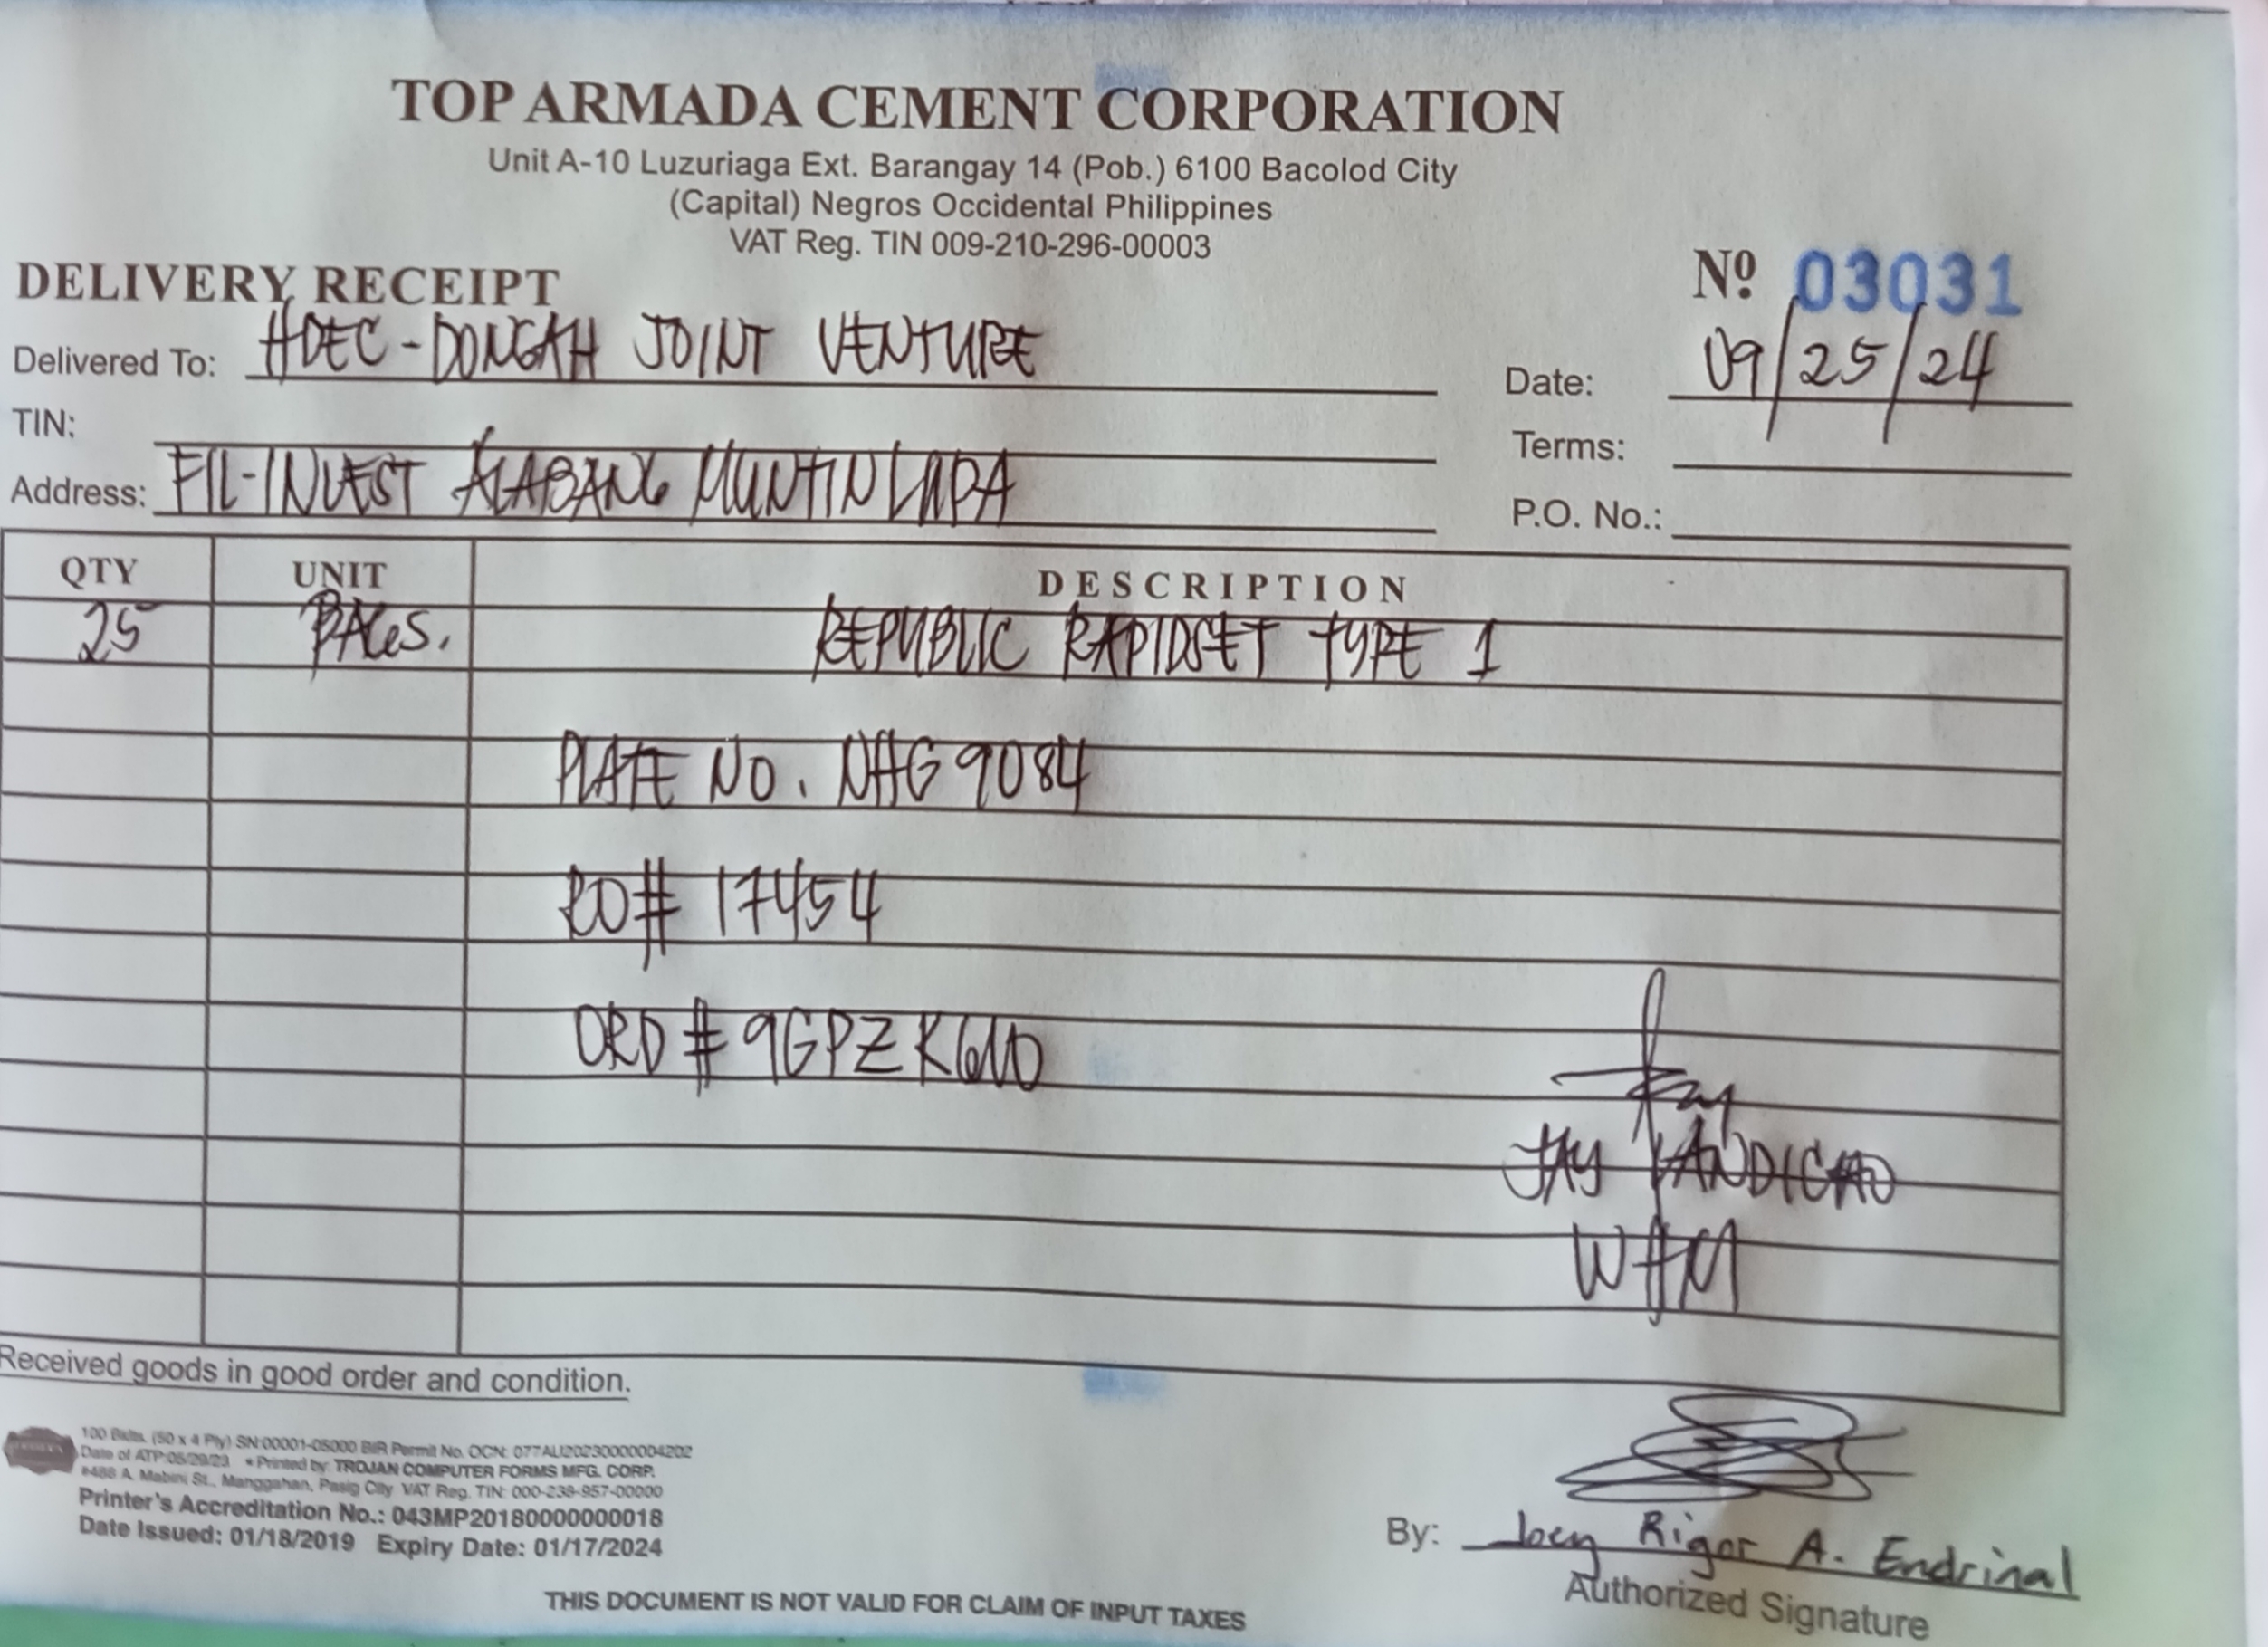 TOP ARMADA CEMENT CORPORATION
Unit A-10 Luzuriaga Ext. Barangay 14 (Pob.) 6100 Bacolod City
(Capital) Negros Occidental Philippines
VAT Reg. TIN 009-210-296-00003
DELIVERY RECEIPT
Nº 03031
Delivered To: HDEC-DONGAH JOINT VENTURE
Date: 09/25/24
TIN:
Terms:
Address: FIL-INVEST ALABANG MUNTINLUPA
P.O. No.:
QTY UNIT DESCRIPTION
25 BAGS. REPUBLIC RAPIDSET TYPE 1
PLATE NO. NHG 9084
RO# 17454
ORD # 9GPZK610
JAY LANDICHO
WHM
Received goods in good order and condition.
100 Bklts. (50 x 4 Ply) SN:00001-05000 BIR Permit No. OCN: 077AU20230000004202
Date of ATP:05/29/23 • Printed by: TROJAN COMPUTER FORMS MFG. CORP.
#488 A. Mabini St., Manggahan, Pasig City VAT Reg. TIN: 000-238-957-00000
Printer's Accreditation No.: 043MP20180000000018
Date Issued: 01/18/2019 Expiry Date: 01/17/2024
By: Joey Rigor A. Endrinal
Authorized Signature
THIS DOCUMENT IS NOT VALID FOR CLAIM OF INPUT TAXES